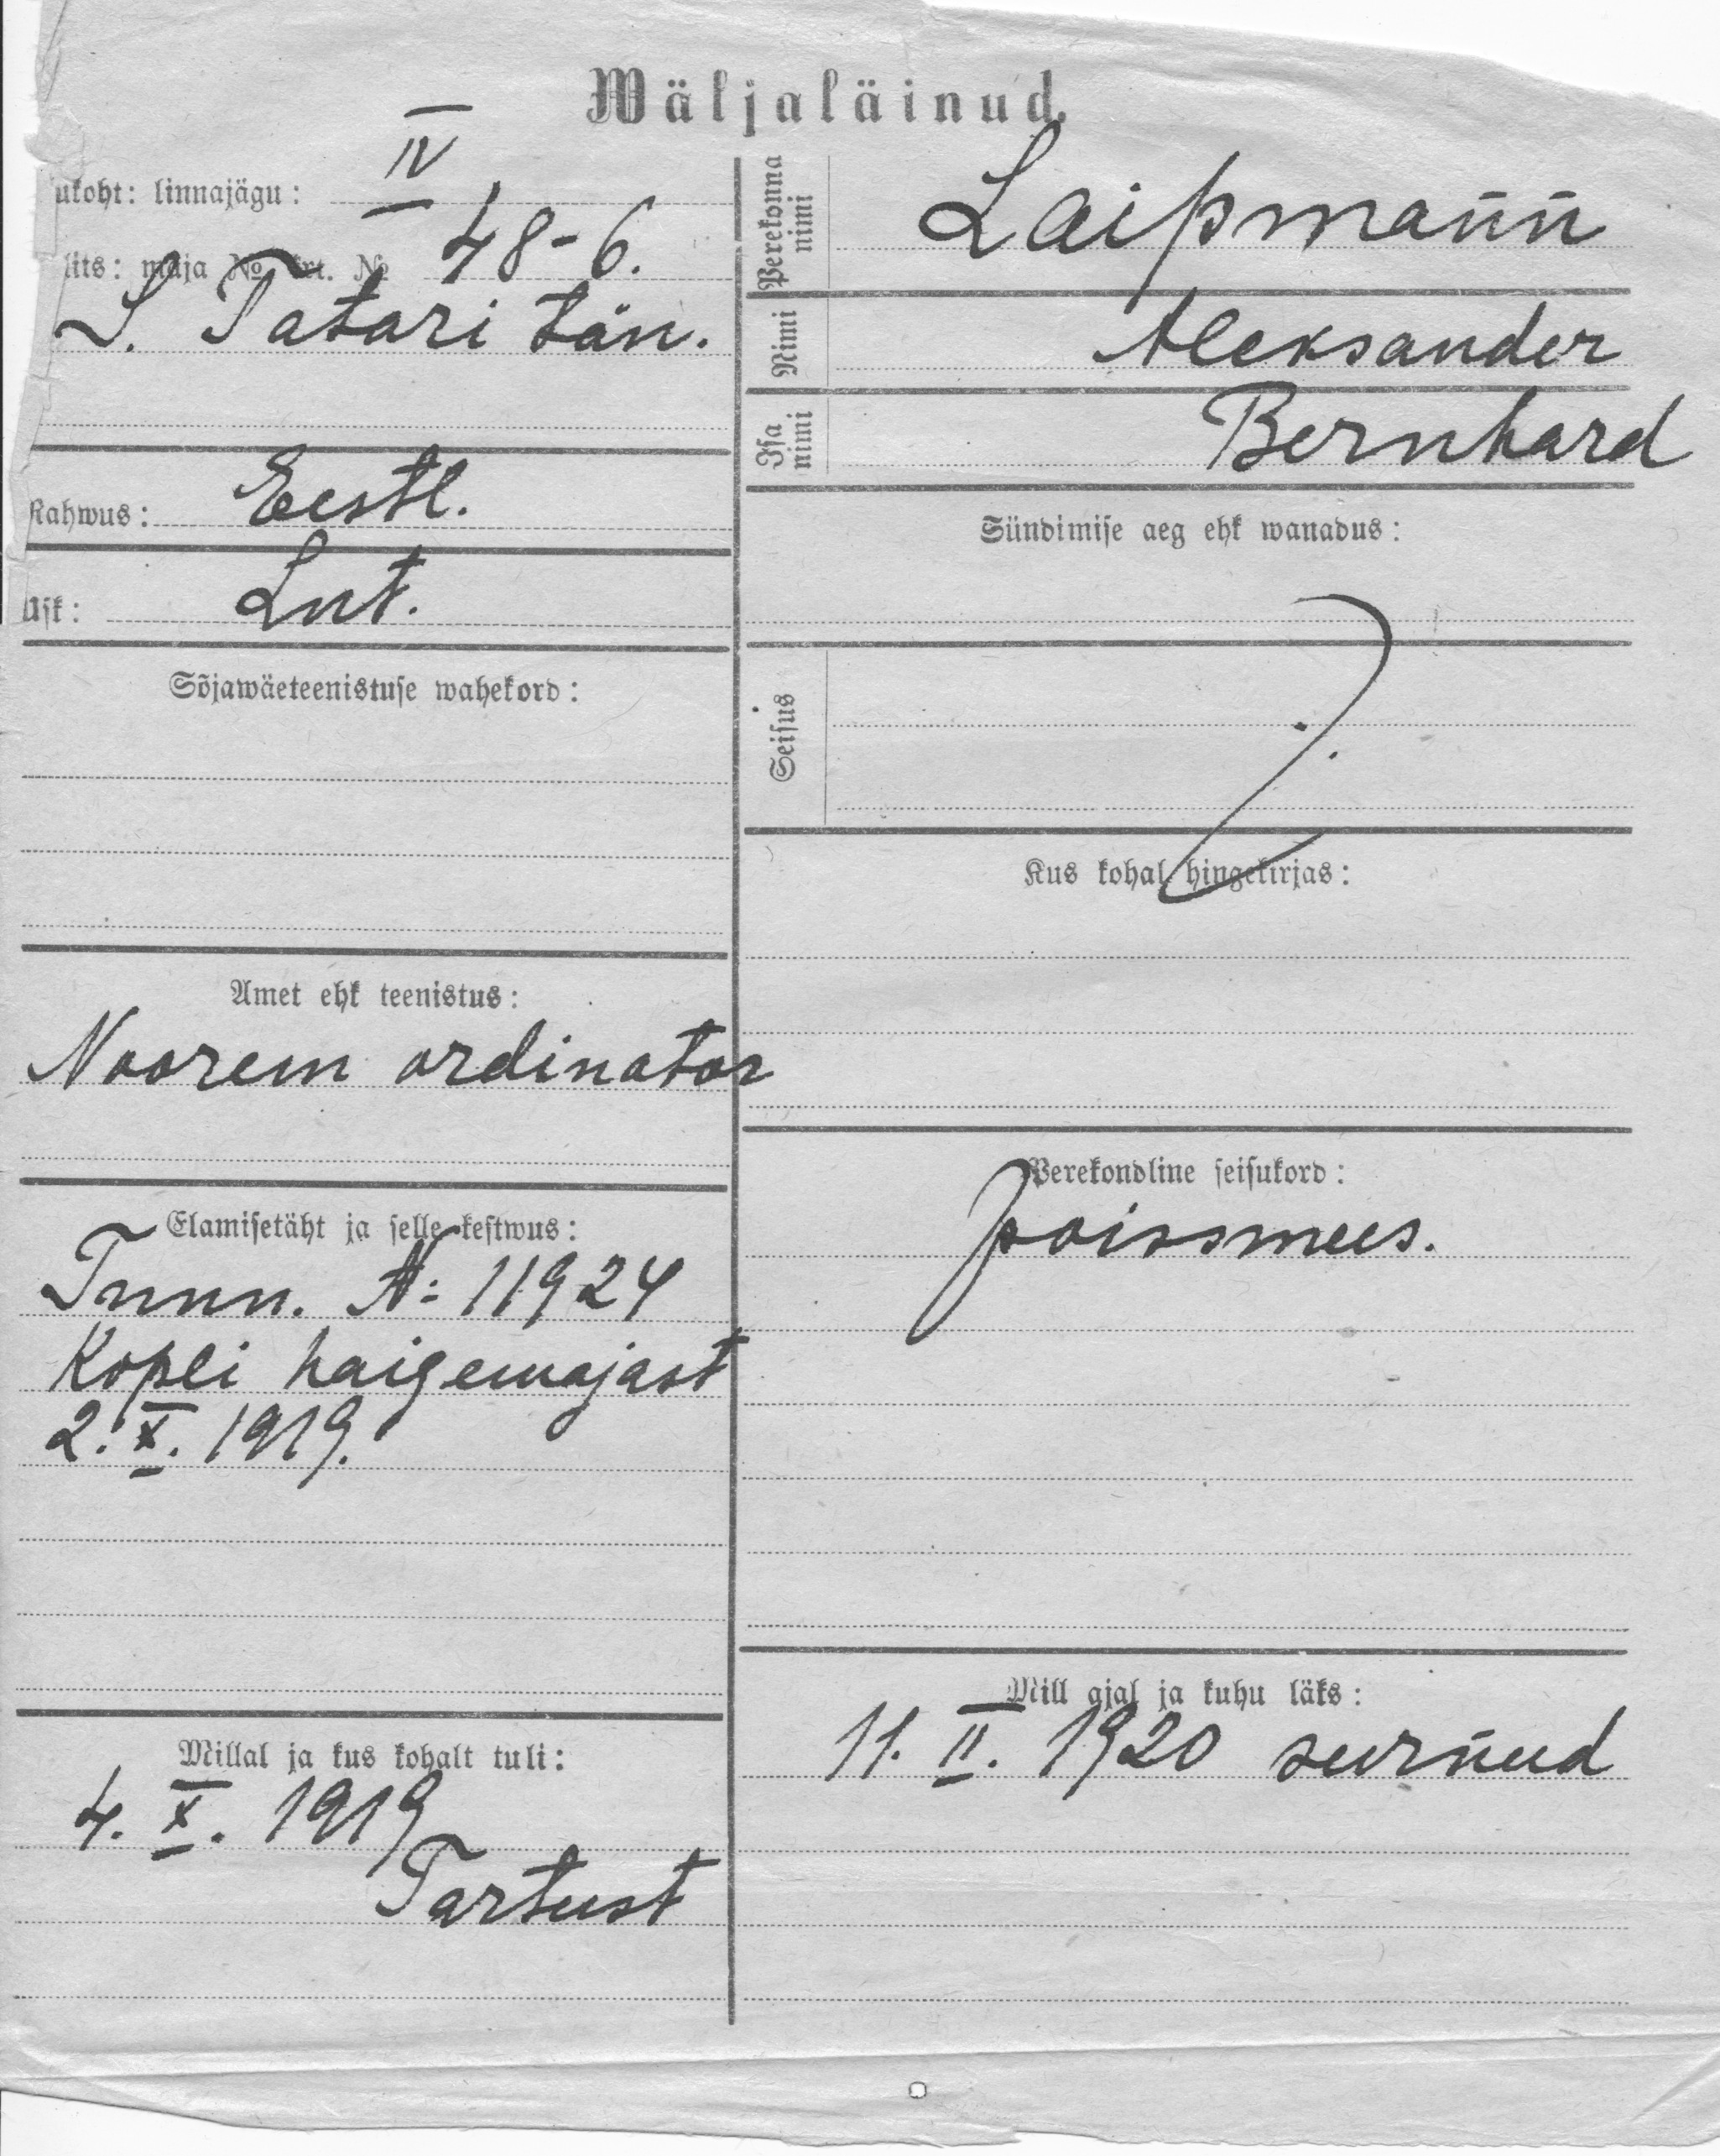 Wäljaläinud.
ukoht: linnajägu: IV
lits: maja № krt. № 48-6.
S. Tatari tän.
Rahwus: Eestl.
Usk: Lut.
Sõjawäeteenistuse wahekord:
Amet ehk teenistus:
Noorem ordinator
Elamisetäht ja selle kestwus:
Tunn. N: 11924
Kopli haigemajast
2. X. 1919.
Millal ja kus kohalt tuli:
4. X. 1919
Tartust
Perekonna nimi
Laipmann
Nimi
Aleksander
Isa nimi
Bernhard
Sündimise aeg ehk wanadus:
Seisus
Kus kohal hingekirjas:
Perekondline seisukord:
poissmees.
Mill ajal ja kuhu läks:
11. II. 1920 surnud